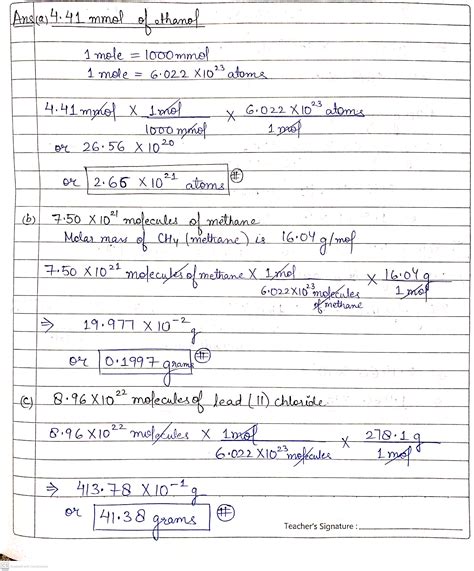 Ans(a) 4.41 mmol of ethanol
1 mole = 1000 mmol
1 mole = 6.022 X 10²³ atoms
4.41 mmol X 1 mol / 1000 mmol X 6.022 X 10²³ atoms / 1 mol
or 26.56 X 10²⁰
or 2.66 X 10²¹ atoms #
(b) 7.50 X 10²¹ molecules of methane
Molar mass of CH4 (methane) is 16.04 g/mol
7.50 X 10²¹ molecules of methane X 1 mol / 6.022 X 10²³ molecules of methane X 16.04 g / 1 mol
⇒ 19.977 X 10⁻² g
or 0.1997 grams #
(c) 8.96 X 10²² molecules of lead (II) chloride
8.96 X 10²² molecules X 1 mol / 6.022 X 10²³ molecules X 278.1 g / 1 mol
⇒ 413.78 X 10⁻¹ g
or 41.38 grams #
Teacher's Signature :